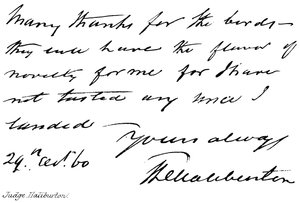 Many thanks for the birds—
they will have the flavor of
novelty for me for I have
not tasted any since I
landed
Yours always
29. Oct. 60
Haliburton
Judge Haliburton.